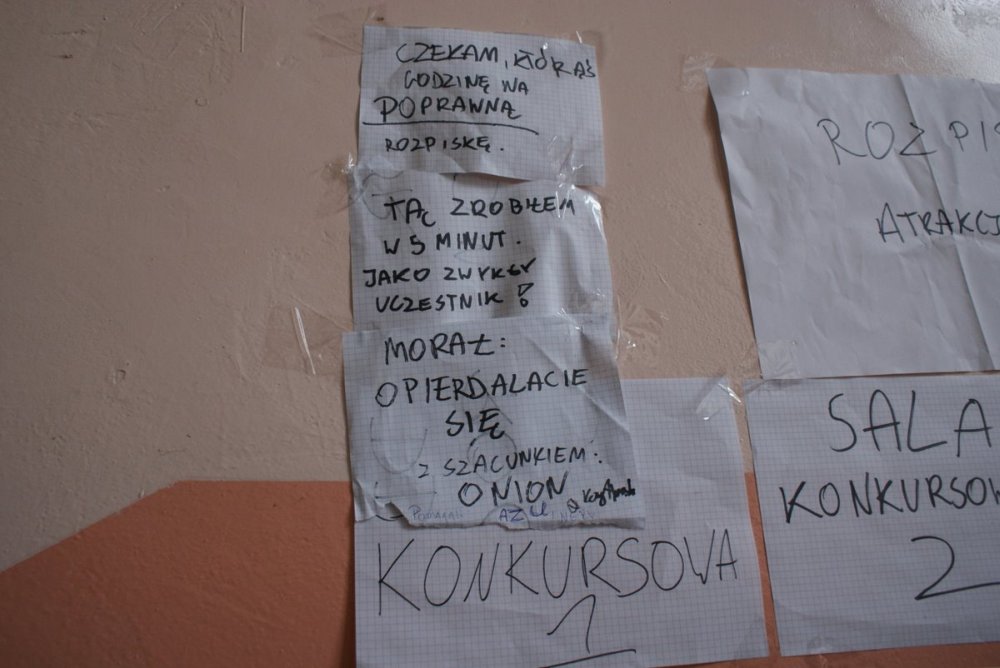 CZEKAM, KTÓRĄŚ
GODZINĘ NA
POPRAWNĄ
ROZPISKĘ.
TĄ ZROBIŁEM
W 5 MINUT.
JAKO ZWYKŁY
UCZESTNIK!
MORAŁ:
OPIERDALACIE
SIĘ
Z SZACUNKIEM:
ONION
AZU
KONKURSOWA
1
ROZPIS
ATRAKCJ
SALA
KONKURSOW
2